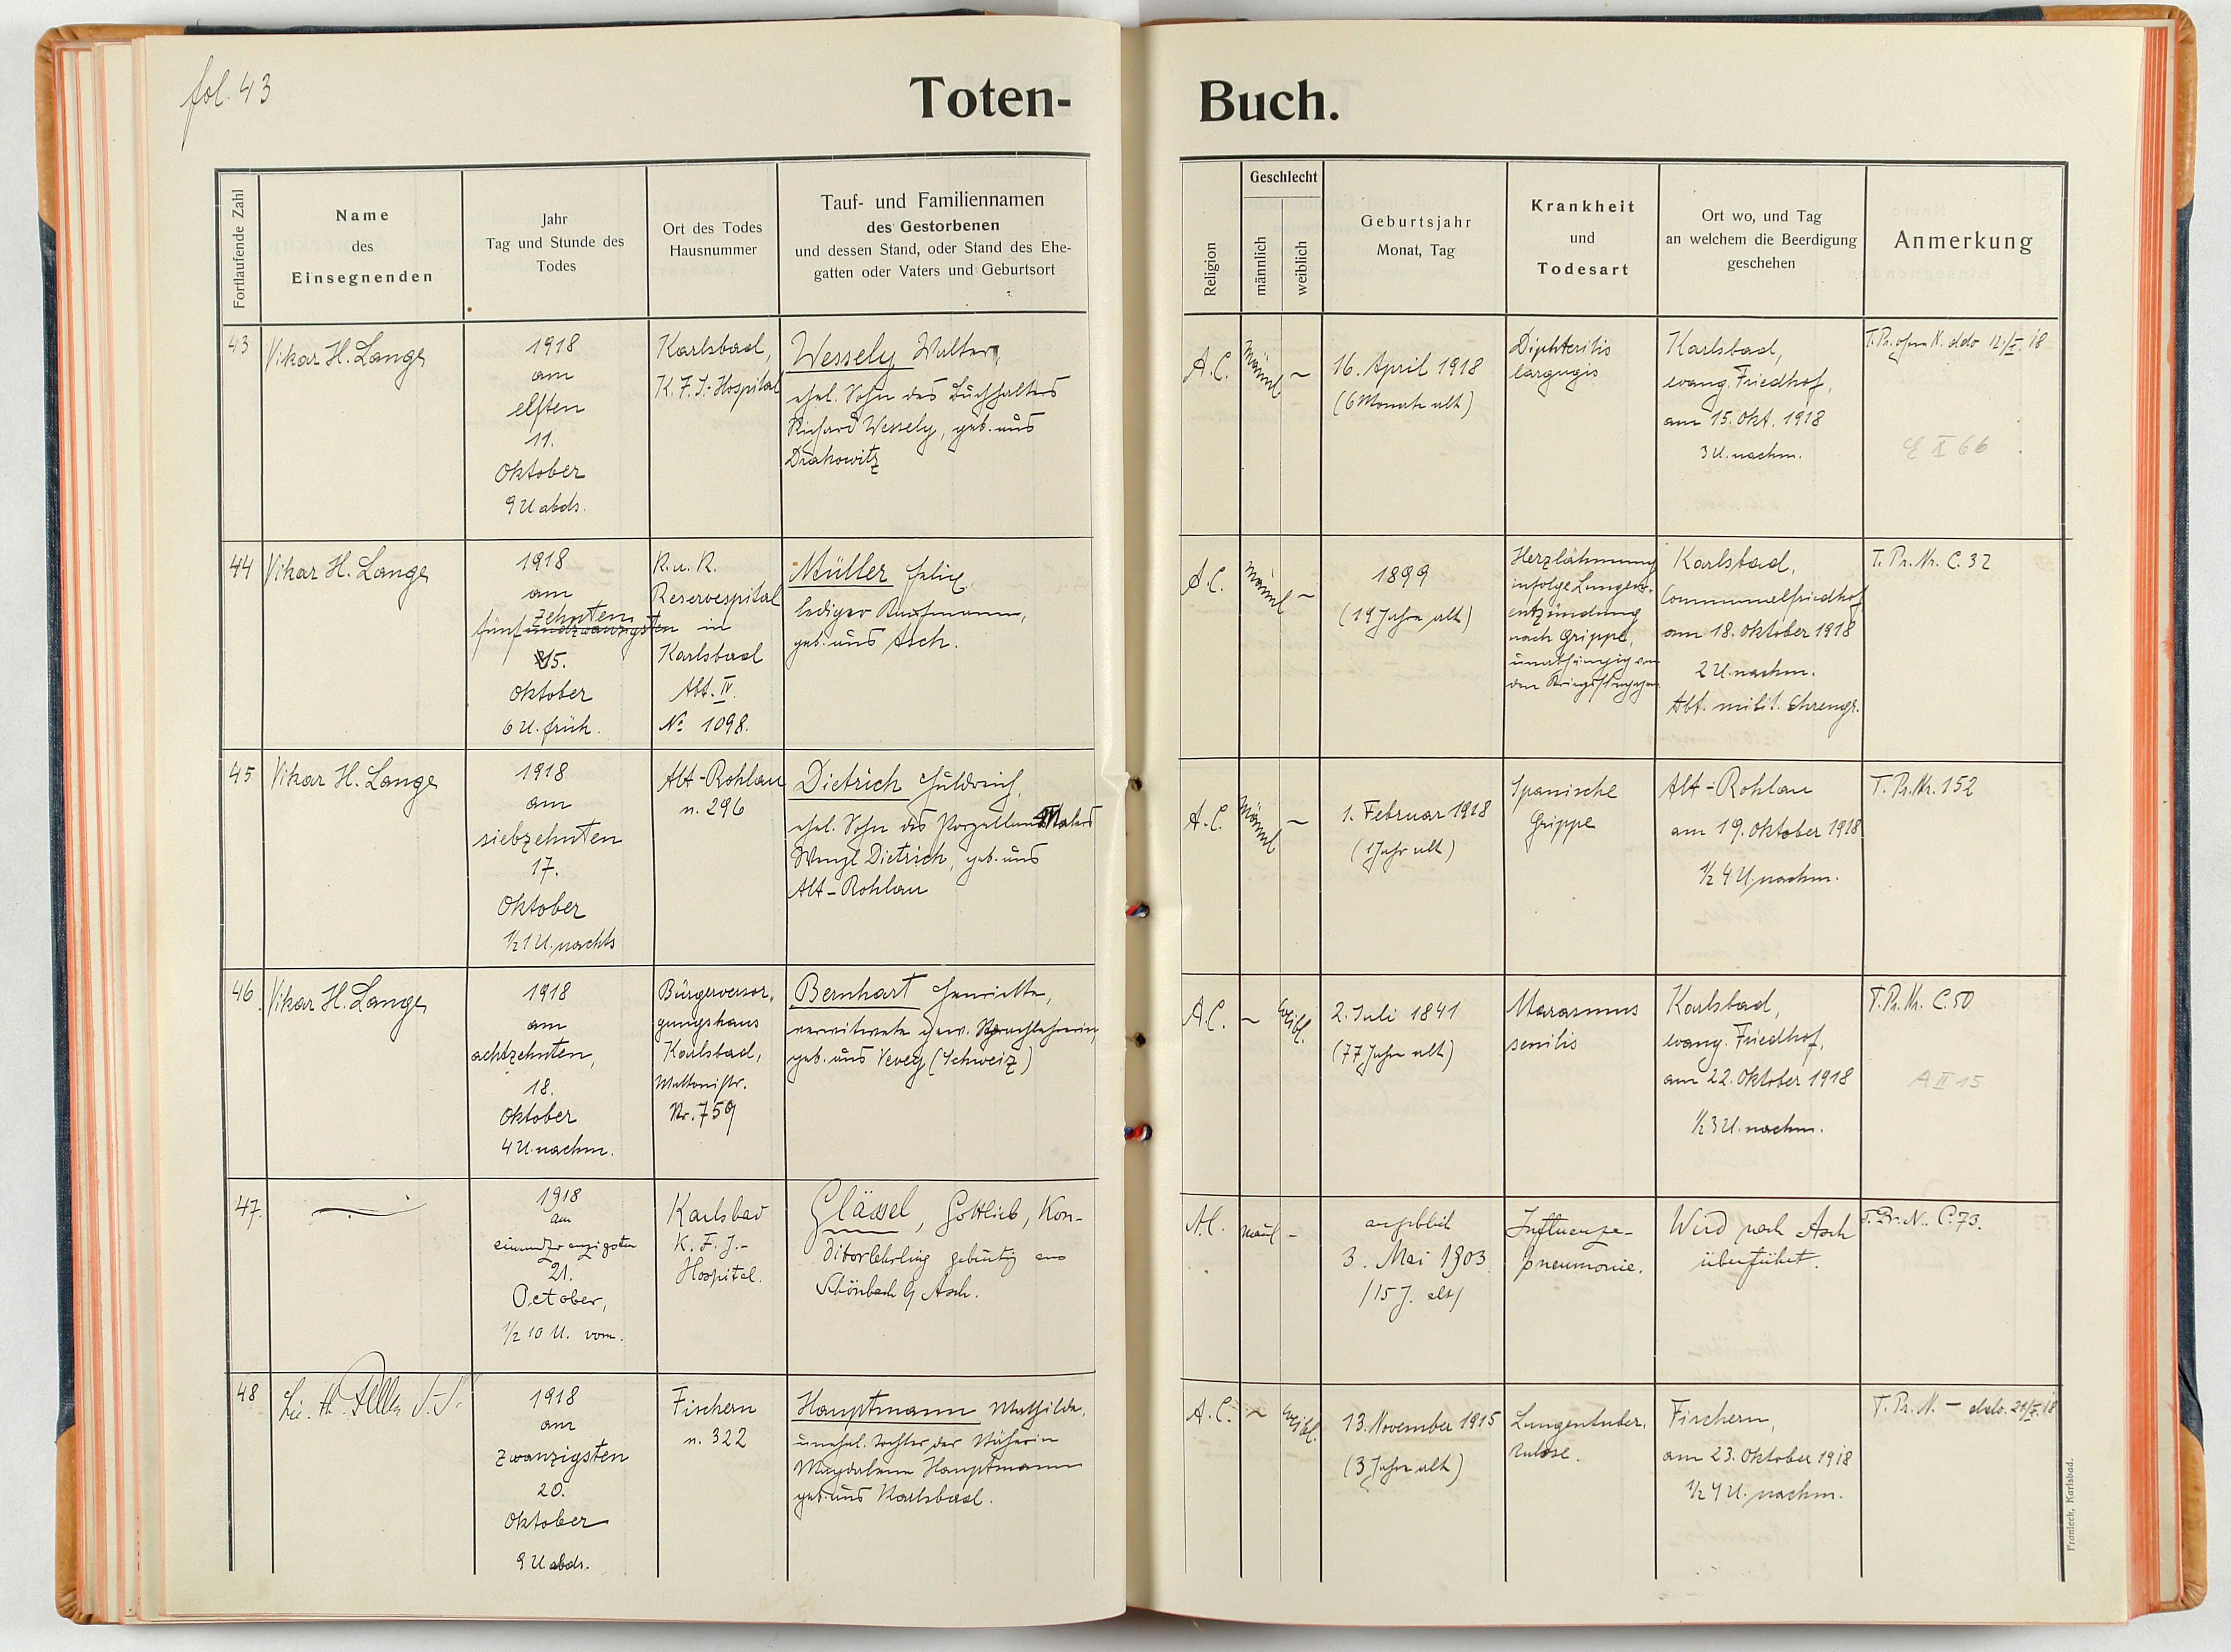 fol. 43
Toten-
Buch.
Fortlaufende Zahl
Name
des
Einsegnenden
Jahr
Tag und Stunde des
Todes
Ort des Todes
Hausnummer
Tauf- und Familiennamen
des Gestorbenen
und dessen Stand, oder Stand des Ehe-
gatten oder Vaters und Geburtsort
Religion
Geschlecht
männlich
weiblich
Geburtsjahr
Monat, Tag
Krankheit
und
Todesart
Ort wo, und Tag
an welchem die Beerdigung
geschehen
Anmerkung
43
Vikar H. Lange
1918
am
elften
11.
Oktober
9 U abds.
Karlsbad,
K. F. J.-Hospital
Wessely Walter,
ehel. Sohn des Buchhalters
Richard Wessely, geb. aus
Drahowitz
A.C.
männl
–
16. April 1918
(6 Monate alt)
Diphteritis
Karlsbad,
evang. Friedhof,
am 15. Okt. 1918
3 U. nachm.
E X 66
44
Vikar H. Lange
1918
am
zehnten
fünfundzwanzigsten
15.
Oktober
6 U. früh.
K. u. K.
Reservespital
in
Karlsbad
Abt. IV.
No 1098.
Müller Felix,
lediger Kaufmann,
geb. aus Asch.
A.C.
männl
–
1899
(19 Jahre alt)
Herzlähmung
infolge Lungen-
entzündung
nach Grippe,
unabhängig von
Karlsbad,
Communalfriedhof
am 18. Oktober 1918
2 U. nachm.
Abt. milit. Ehrengr.
T. Pr. Nr. C. 32
45
Vikar H. Lange
1918
am
siebzehnten
17.
Oktober
½ 1 U. nachts
Alt-Rohlau
n. 296
Dietrich Huldreich,
ehel. Sohn des Porzellan Malers
Wenzl Dietrich, geb. aus
Alt-Rohlau
A.C.
männl
–
1. Februar 1918
(1 Jahr alt)
Spanische
Grippe
Alt-Rohlau
am 19. Oktober 1918
½ 4 U. nachm.
T. Pr. Nr. 152
46
Vikar H. Lange
1918
am
achtzehnten,
18.
Oktober
4 U. nachm.
Bürgerversor-
gungshaus
Karlsbad,
Mattonistr.
Nr. 759
Bernhart Henriette,
verwitwete gew. Sprachlehrerin,
geb. aus Vevey (Schweiz)
A.C.
–
weibl.
2. Juli 1841
(77 Jahre alt)
Marasmus
senilis
Karlsbad,
evang. Friedhof,
am 22. Oktober 1918
½ 3 U. nachm.
T. Pr. Nr. C. 50
A II 15
47.
1918
am
einundzwanzigsten
21.
October,
½ 10 U. vorm.
Karlsbad
K. F. J.-
Hospital.
Glässel, Gottlieb, Kon-
ditorlehrling gebürtig aus
Schönbach b/ Asch.
A.C.
männl
–
angeblich
3. Mai 1903
/15 J. alt/
Influenza-
pneumonie.
Wird nach Asch
überführt.
T. Pr. N. C. 73.
48
1918
am
zwanzigsten
20.
Oktober
9 U abds.
Fischern
n. 322
Hauptmann Mathilde,
unehel. Tochter der Näherin
Magdalena Hauptmann
geb. aus Karlsbad.
A.C.
–
weibl.
13. November 1915
(3 Jahre alt)
Lungentuber-
kulose.
Fischern,
am 23. Oktober 1918
½ 4 U. nachm.
T. Pr. N. – ddo. 21/X. 18
Franieck, Karlsbad.